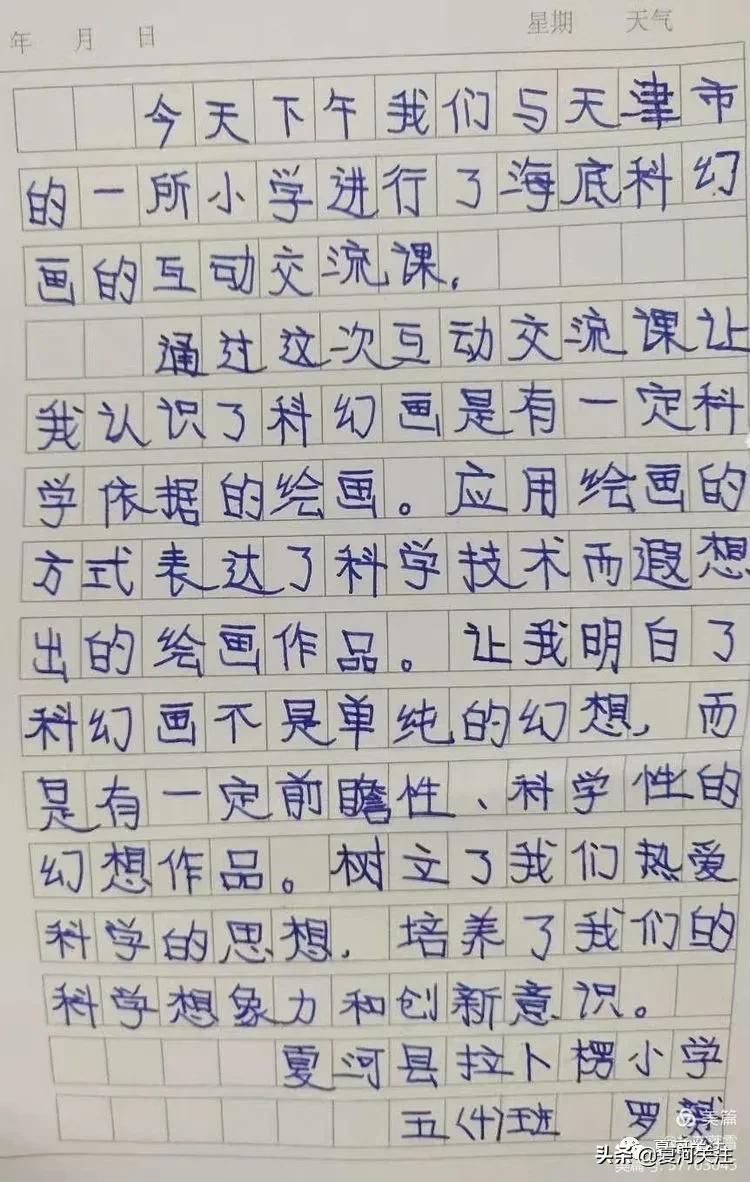 年 月 日 星期 天气
今天下午我们与天津市
的一所小学进行了海底科幻
画的互动交流课.
通过这次互动交流课让
我认识了科幻画是有一定科
学依据的绘画。应用绘画的
方式表达了科学技术而遐想
出的绘画作品。让我明白了
科幻画不是单纯的幻想,而
是有一定前瞻性、科学性的
幻想作品。树立了我们热爱
科学的思想.培养了我们的
科学想象力和创新意识。
夏河县拉卜楞小学
五(4)班 罗
美篇
头条@夏河关注
美篇号:57703045